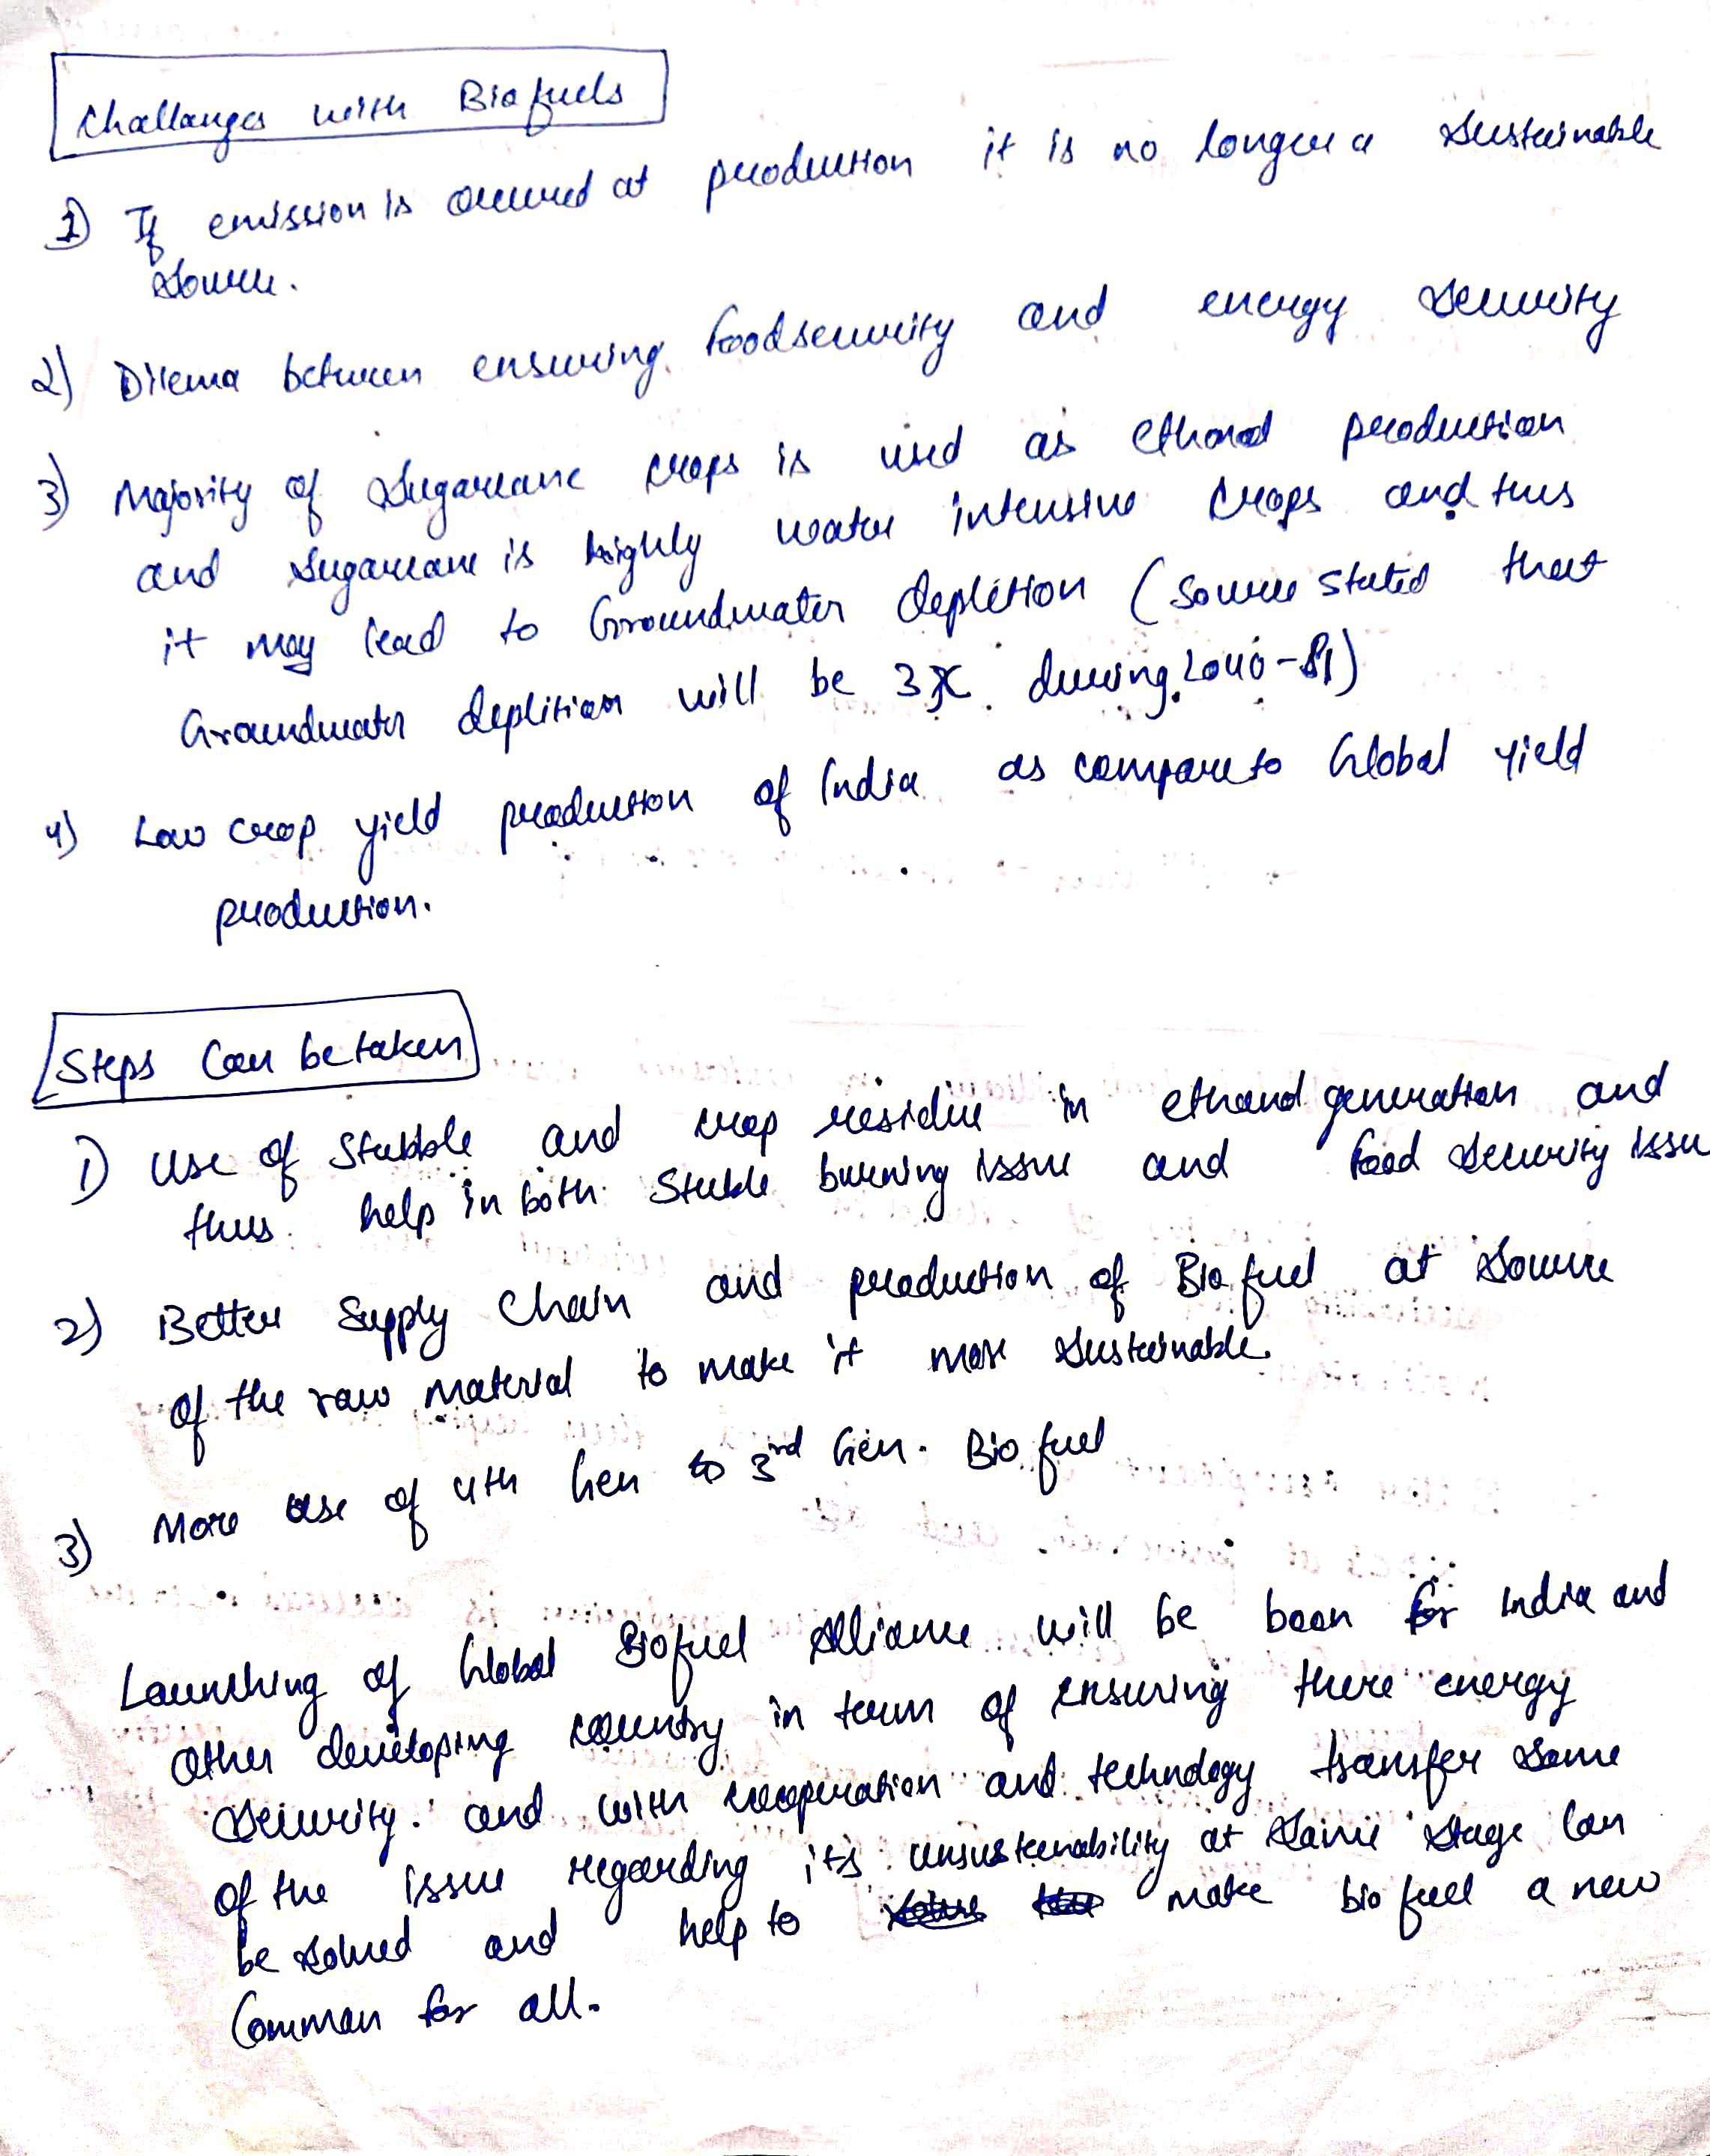 Challanges with Biofuels
1) If emission is occured at production it is no longer a sustainable
source.
2) Dilema between ensuring foodsecurity and energy security
3) Majority of sugarcane crops is used as ethanol production
and sugarcane is highly water intensive crops and thus
it may lead to Groundwater depletion (source stated that
Groundwater deplition will be 3X during 2040-81)
4) Low crop yield production of India as compare to Global yield
production.
Steps Can be taken
1) Use of Stubble and crop residue in ethanol generation and
thus help in both Stuble burning issue and food security issu
2) Better Supply Chain and production of Biofuel at source
of the raw material to make it more sustainable.
3) More use of 4th Gen to 3rd Gen. Bio fuel
Launching of Global Biofuel Alliance will be boon for India and
other developing country in term of ensuring there energy
security. and with cooperation and technology transfer some
of the issue regarding its unsustenability at same stage can
be solved and help to make bio fuel a new
Comman for all.